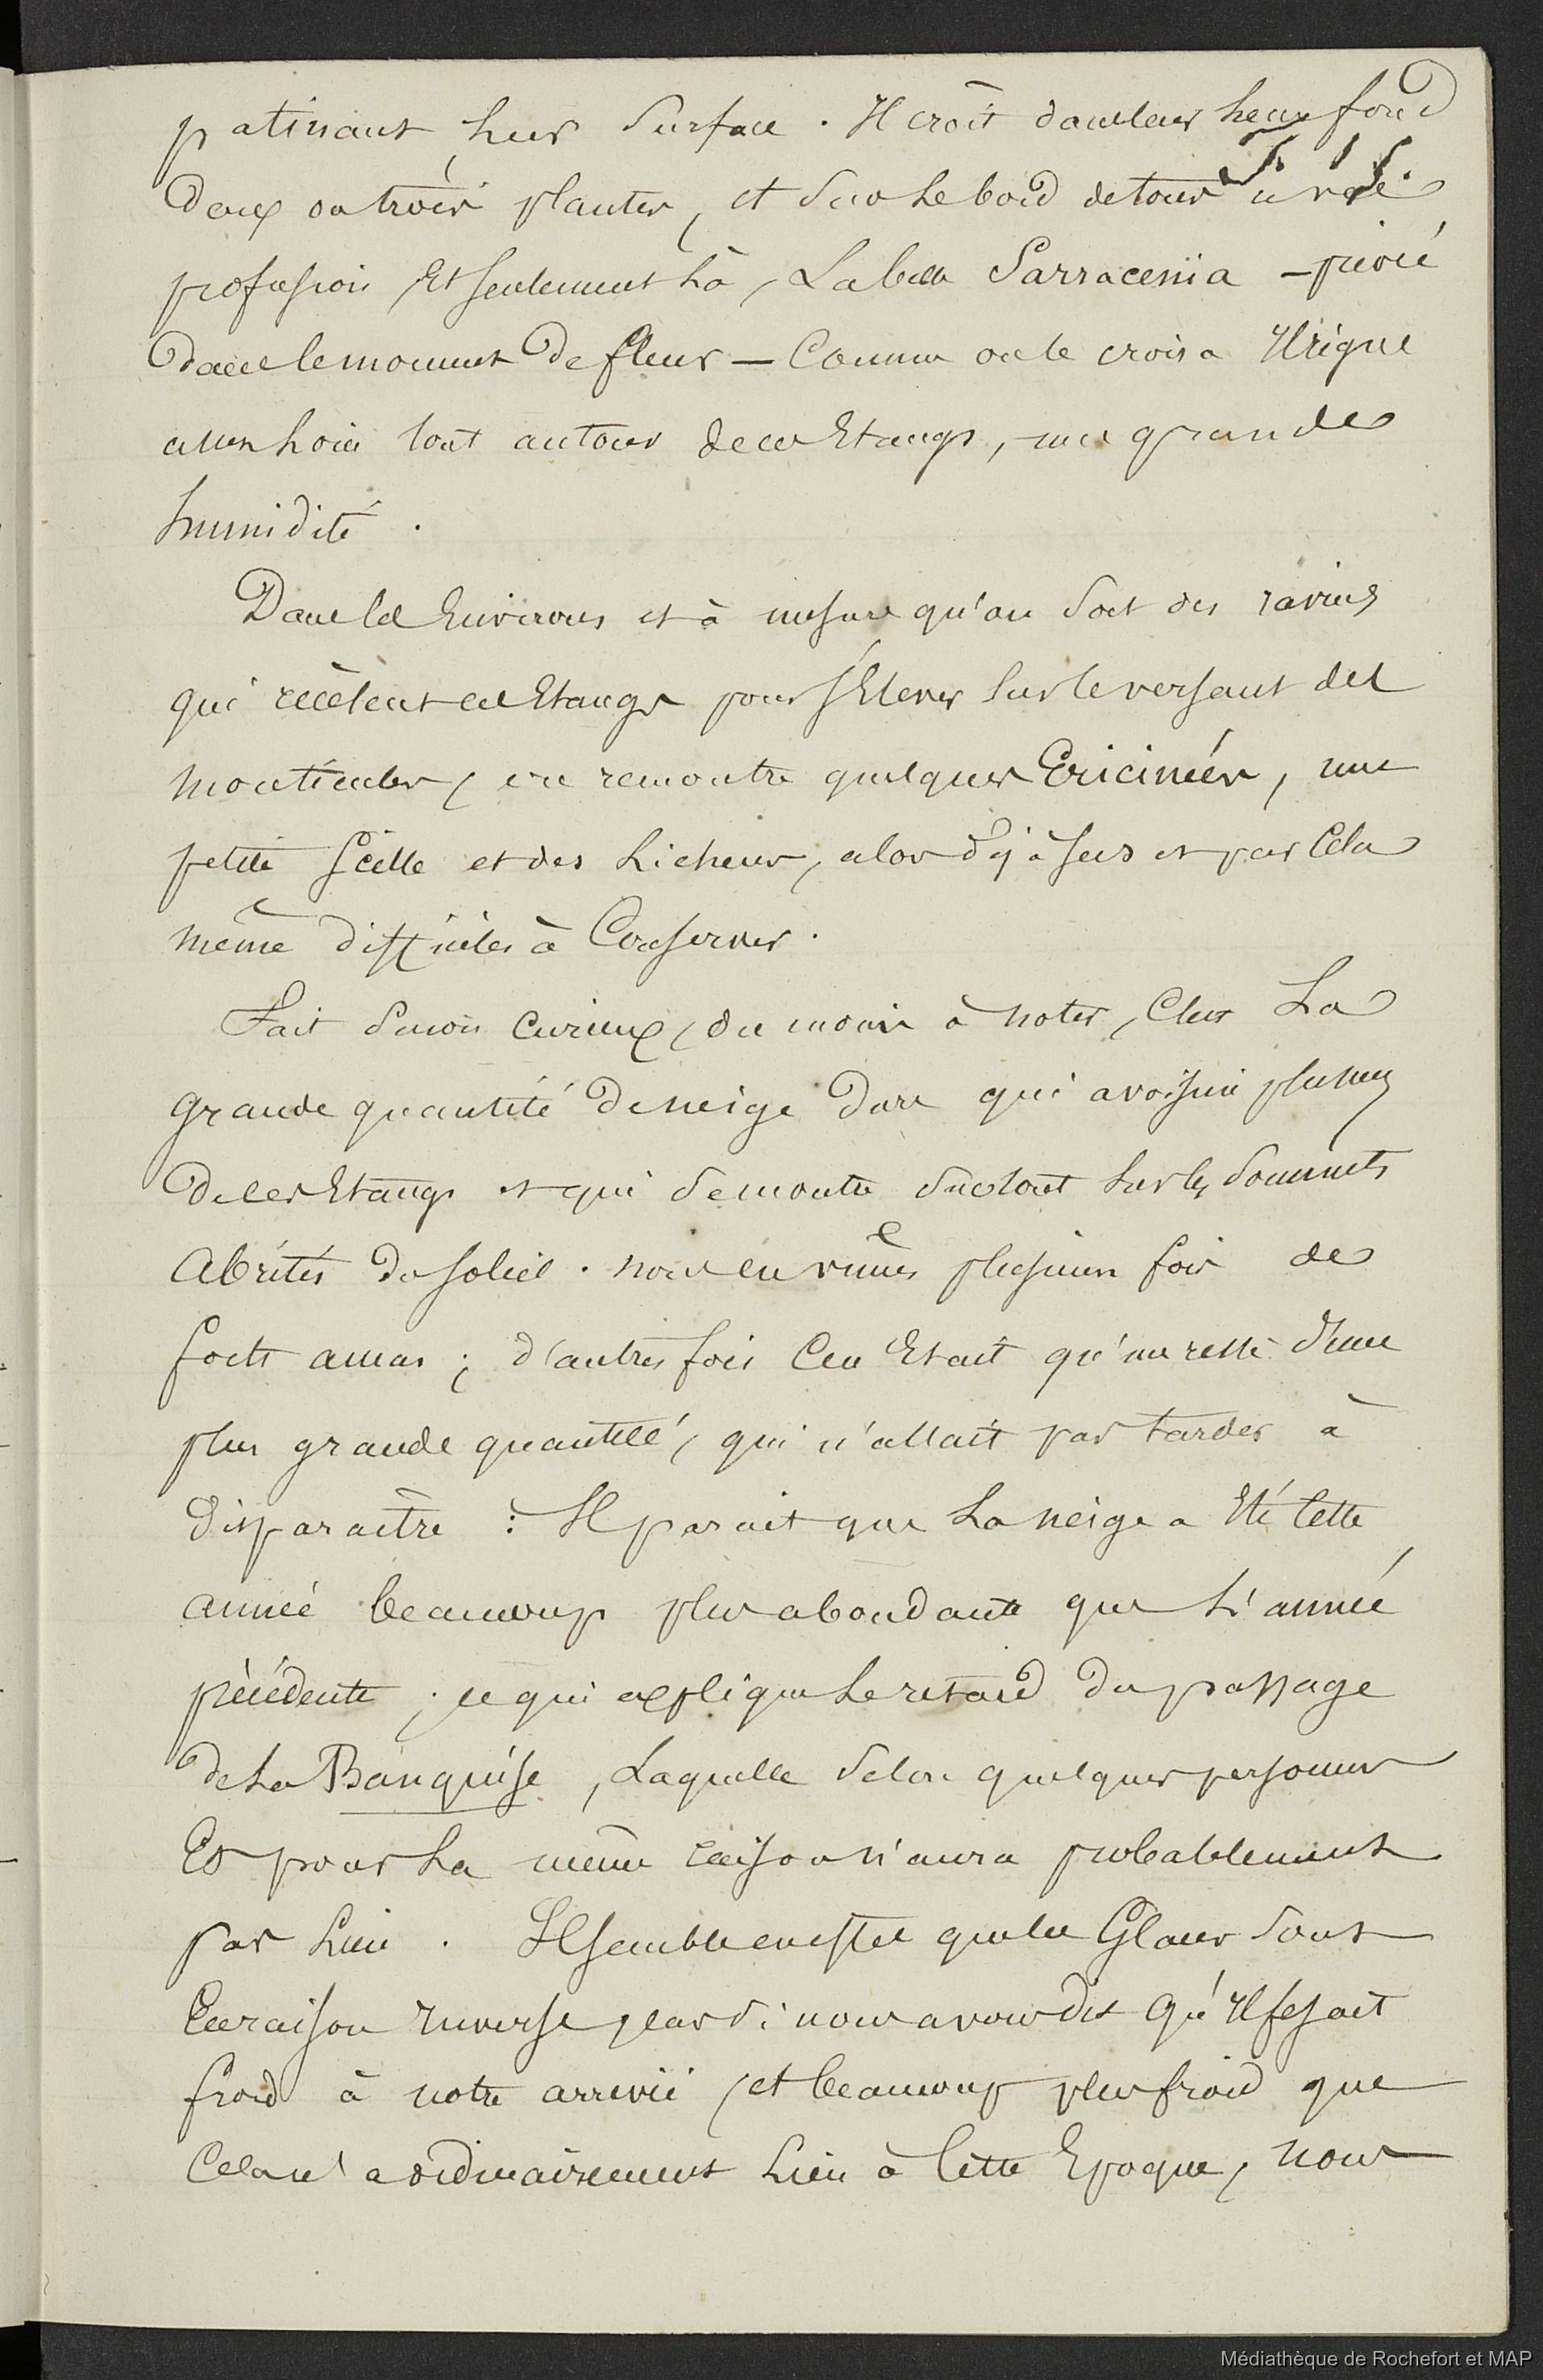 patinant leur surface. Il croît dans leur fond
Deux ou trois plantes, et sur le bord de tous à rare
profusion, Et seulement là, La belle Sarracenia – privée
Dans le moment De fleurs – Comme on le croira Il règne
aussi loin tout autour de ces Etangs, une grande
humidité.
Dans les Environs et à mesure qu'on sort des ravins
qui recèlent ces Etangs pour s'Elever sur le versant des
monticules, on rencontre quelques Ericinées, une
petite Scille et des Lichens, alors déjà secs et par Cela
même difficiles à Conserver.
Fait sinon curieux, du moins à noter, C'est La
grande quantité De neige Dure qui avoisine plusieurs
De ces Etangs et qui se montre surtout sur les sommets
Abrités du soleil. nous en vîmes plusieurs fois de
forts amas ; d'autres fois Ce n'Etait qu'un reste d'une
plus grande quantité, qui n'allait pas tarder à
disparaître : Il parait que La neige a Eté Cette
année beaucoup plus abondante que L'année
précédente ; ce qui explique Le retard Du passage
De La Banquise, Laquelle selon quelques personnes
Et pour La même raison n'aura probablement
pas Lieu. Il semble en effet que les Glaces sont
En raison inverse, car si nous avons dit qu'Il fesait
froid à notre arrivée, et beaucoup plus froid que
Cela n'a ordinairement Lieu à Cette Epoque, nous
Médiathèque de Rochefort et MAP